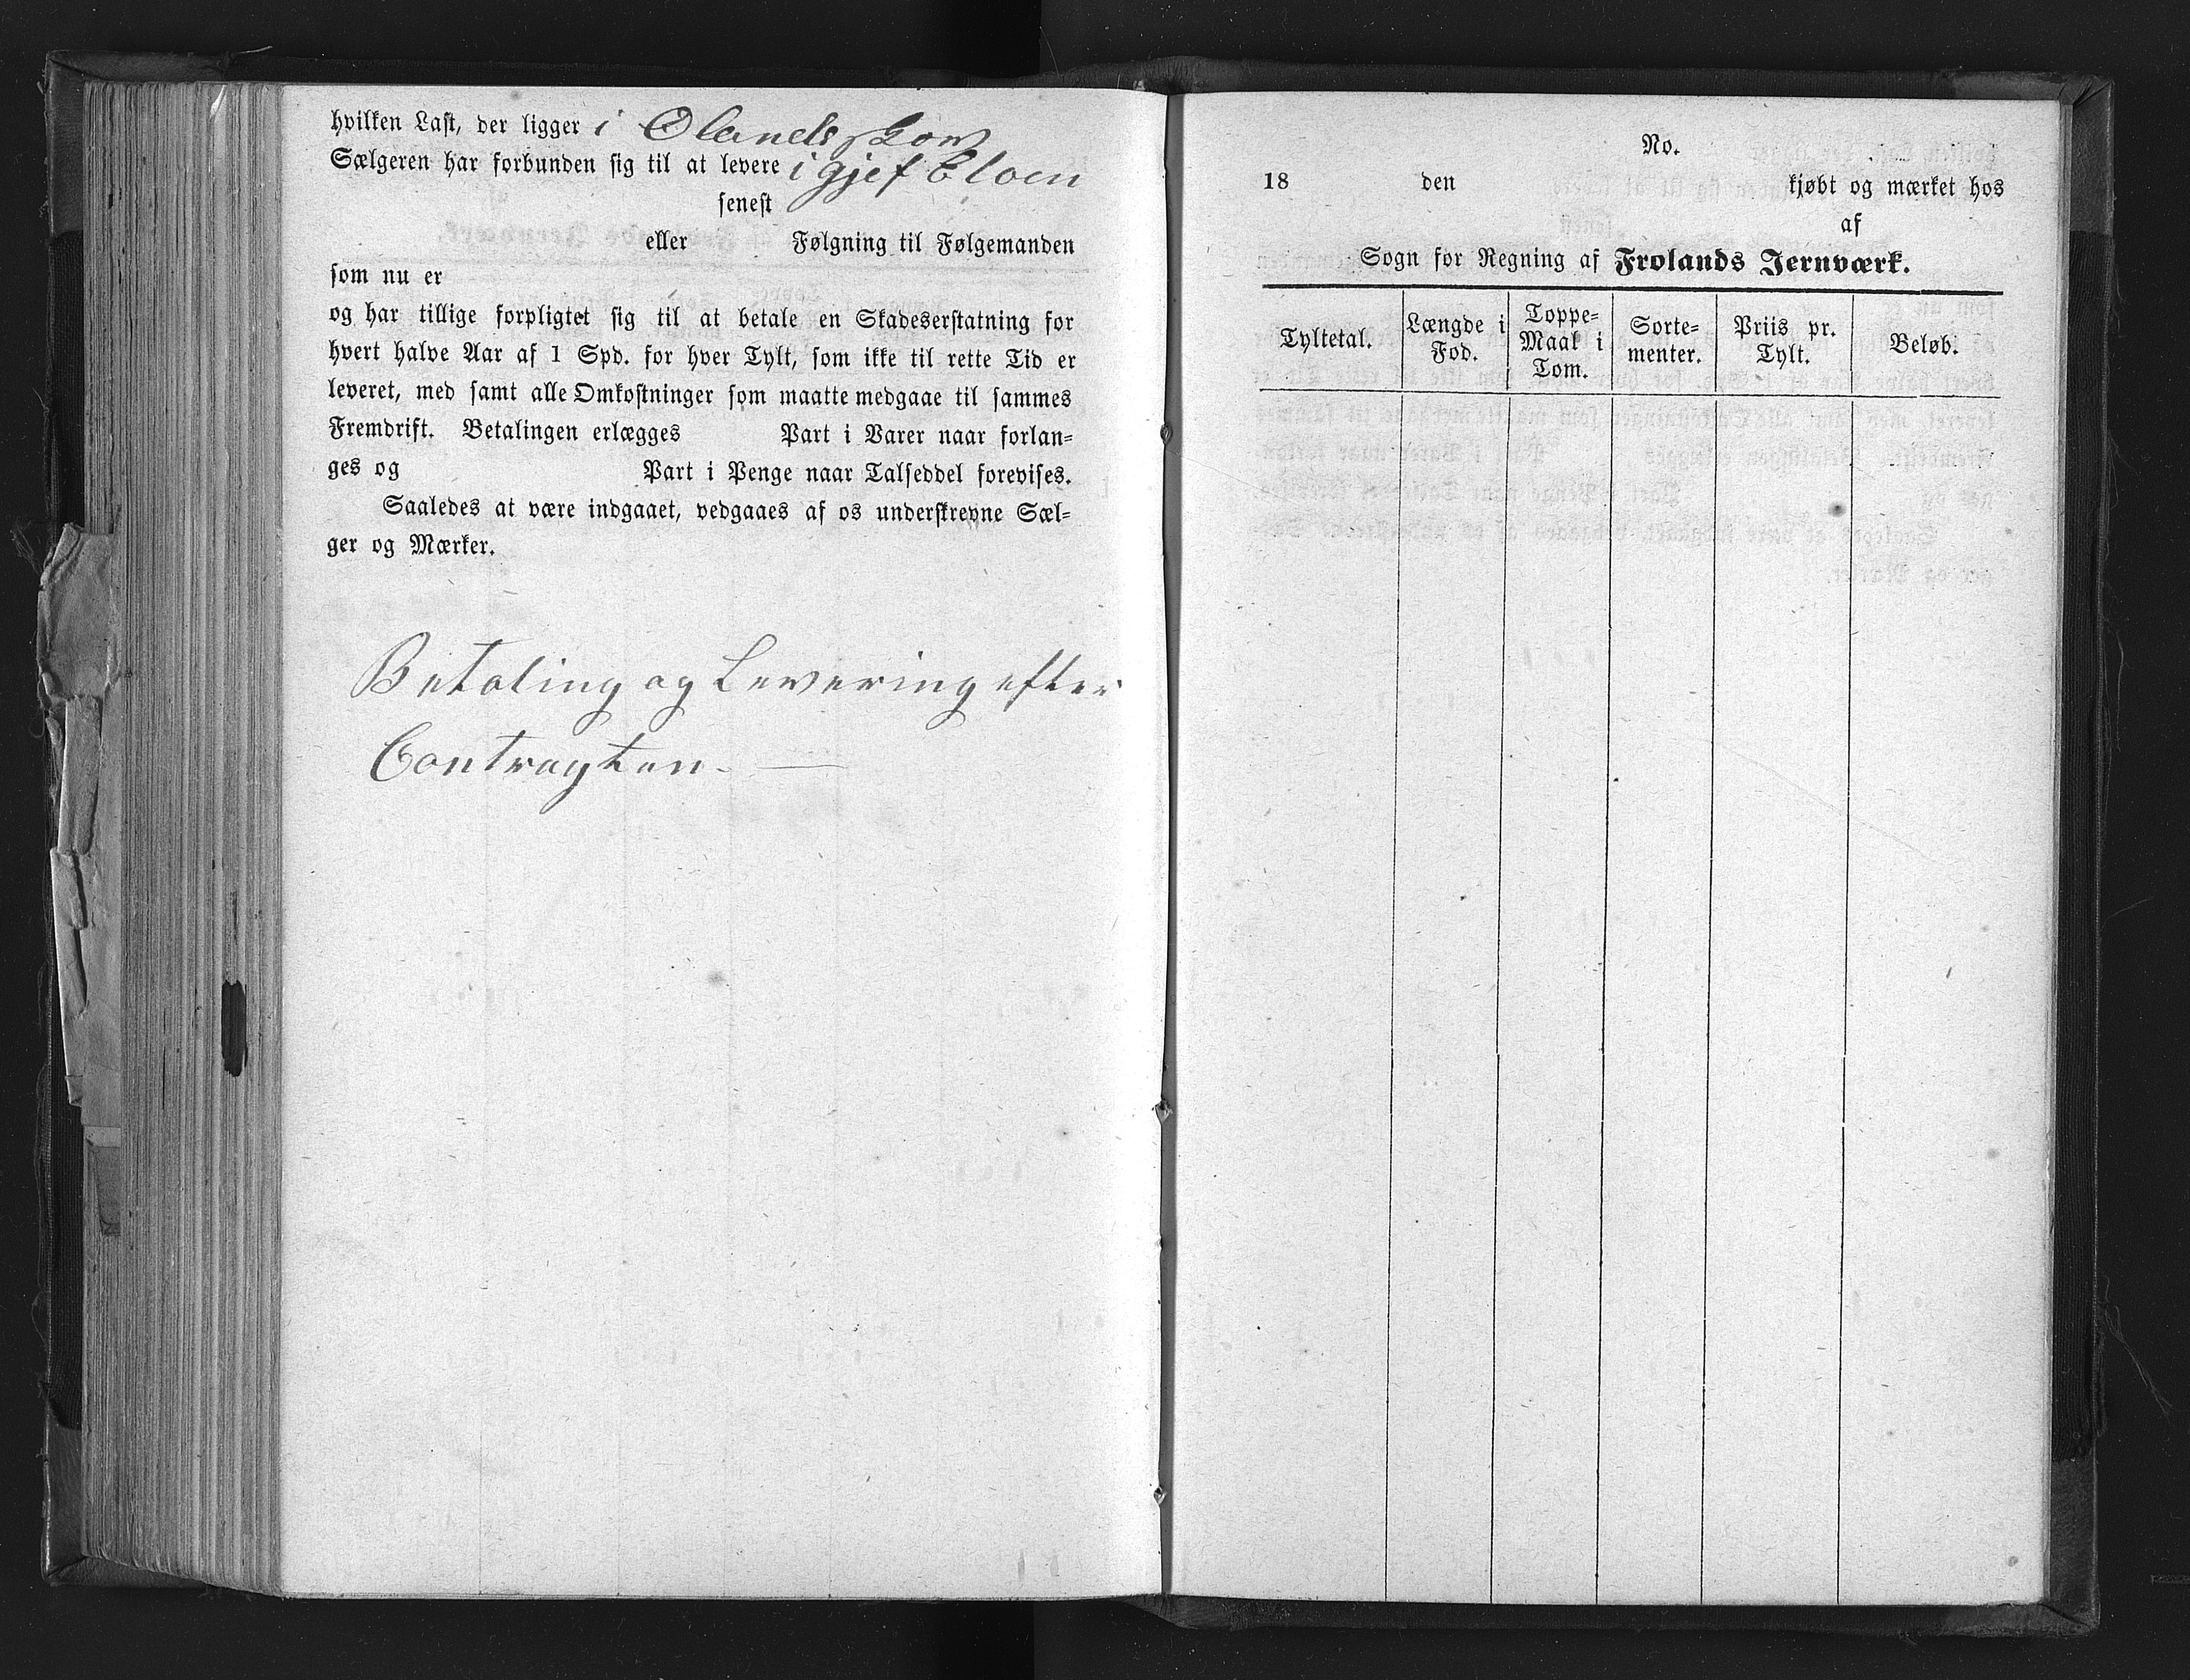 hvilken Last, der ligger i Olands skov
Sælgeren har forbunden sig til at levere i gjef Eloen
senest
eller Følgning til Følgemanden
som nu er
og har tillige forpligtet sig til at betale en Skadeserstatning for
hvert halve Aar af 1 Spd. for hver Tylt, som ikke til rette Tid er
leveret, med samt alle Omkostninger som maatte medgaae til sammes
Fremdrift. Betalingen erlægges Part i Varer naar forlan=
ges og Part i Penge naar Talseddel forevises.
Saaledes at være indgaaet, vedgaaes af os underskrevne Sæl=
ger og Mærker.
Betaling og Levering efter
Contragten. —
No.
18 den kjøbt og mærket hos
af
Sogn for Regning af Frolands Jernværk.
Tyltetal. Længde i Fod. Toppe= Maal i Tom. Sorte= menter. Priis pr. Tylt. Beløb.